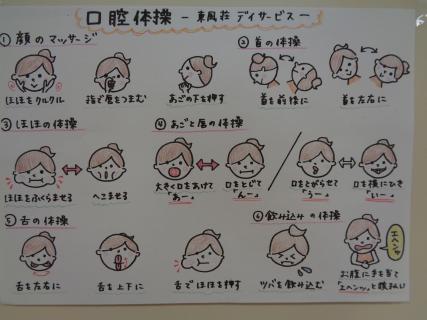 口腔体操 ー東風荘 デイサービスー
① 顔のマッサージ
② 首の体操
ほほをクルクル
指で唇をつまむ
あごの下を押す
首を前後に
首を左右に
③ ほほの体操
④ あごと唇の体操
ほほをふくらませる
へこませる
大きく口をあけて
「あー」
口をとじて
「んー」
口をとがらせて
「うー」
口を横にひき
「いー」
⑤ 舌の体操
⑥ 飲み込みの体操
エヘンッ
舌を左右に
舌を上下に
舌でほほを押す
ツバを飲み込む
お腹に手を当て
「エヘンッ」と咳払い